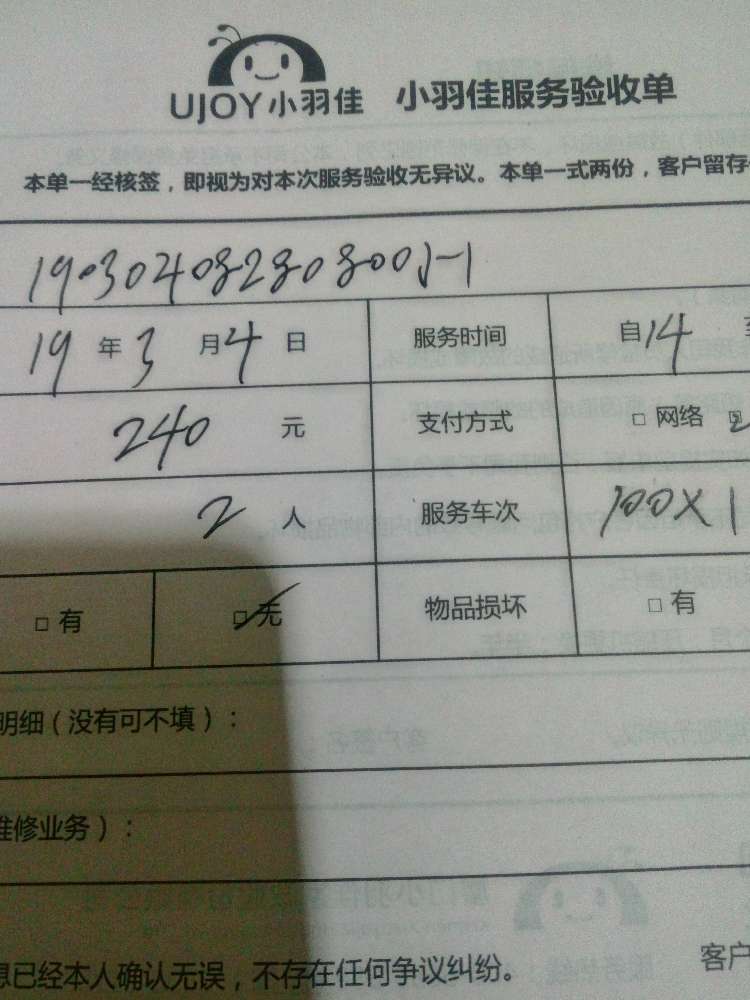 UJOY小羽佳 小羽佳服务验收单
本单一经核签，即视为对本次服务验收无异议。本单一式两份，客户留存
19 年 3 月 4 日 服务时间 自14
240 元 支付方式 □ 网络
2 人 服务车次 100X1
□ 有 □ 无 物品损坏 □ 有
明细（没有可不填）：
维修业务）：
息已经本人确认无误，不存在任何争议纠纷。 客户